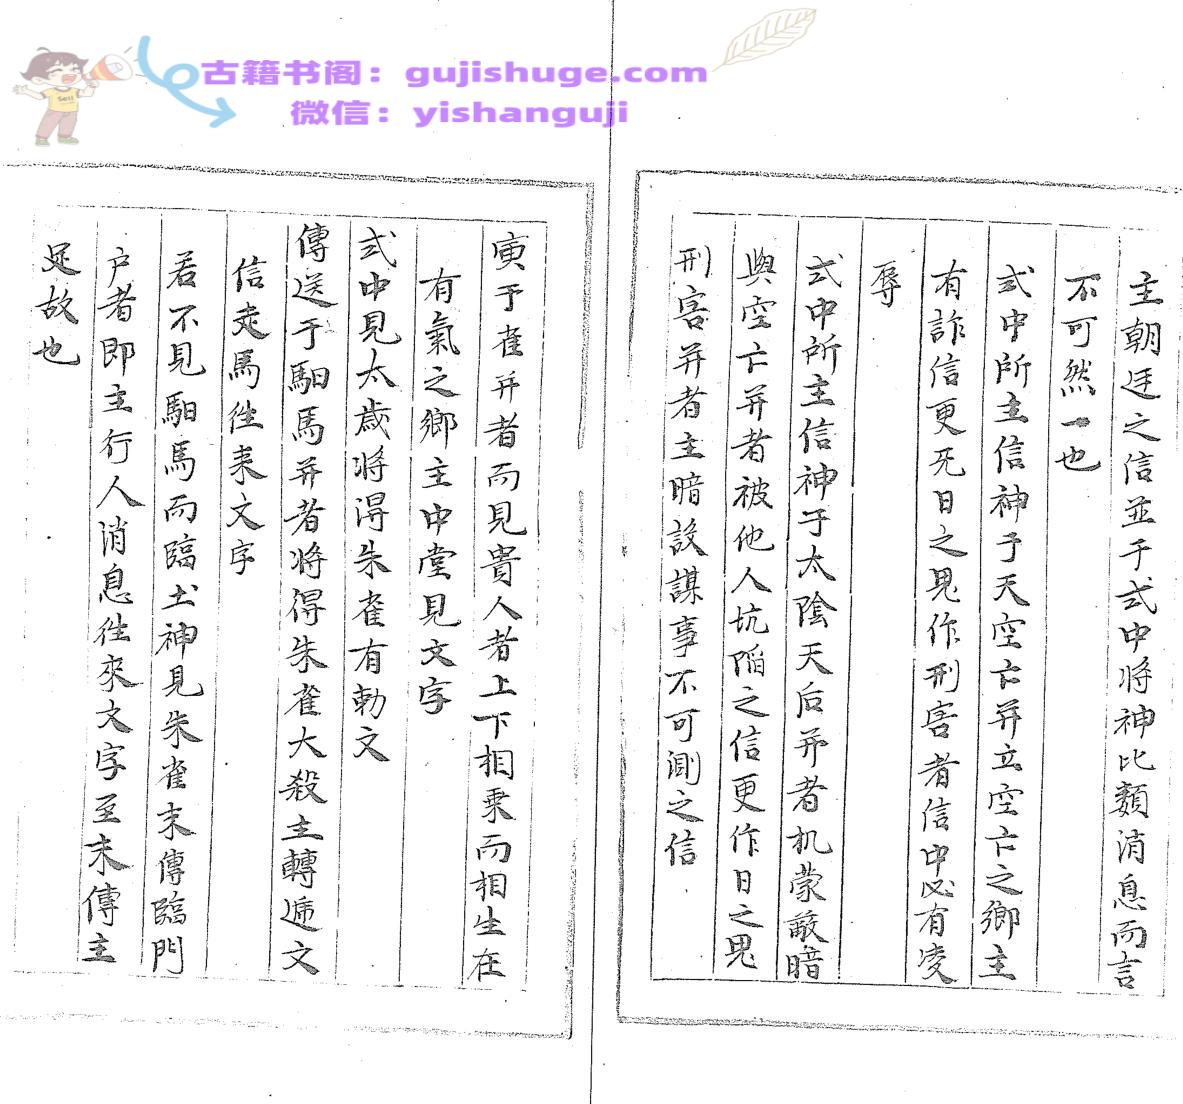 古籍书阁：gujishuge.com
微信：yishanguji
Sell
主朝廷之信並于式中将神比類消息而言
不可然一也
式中所主信神于天空亡并立空亡之鄉主
有詐信更死日之鬼作刑害者信中必有凌
辱
式中所主信神于太陰天后并者机蒙蔽暗
與空亡并者被他人坑陷之信更作日之鬼
刑害并者主暗設謀事不可測之信
寅于雀并者而見貴人者上下相乗而相生在
有氣之鄉主中堂見文字
式中見太歲将得朱雀有勅文
傳送于馹馬并者将得朱雀大殺主轉逓文
信走馬徃来文字
若不見馹馬而臨土神見朱雀末傳臨門
户者即主行人消息徃來文字至末傳主
足故也